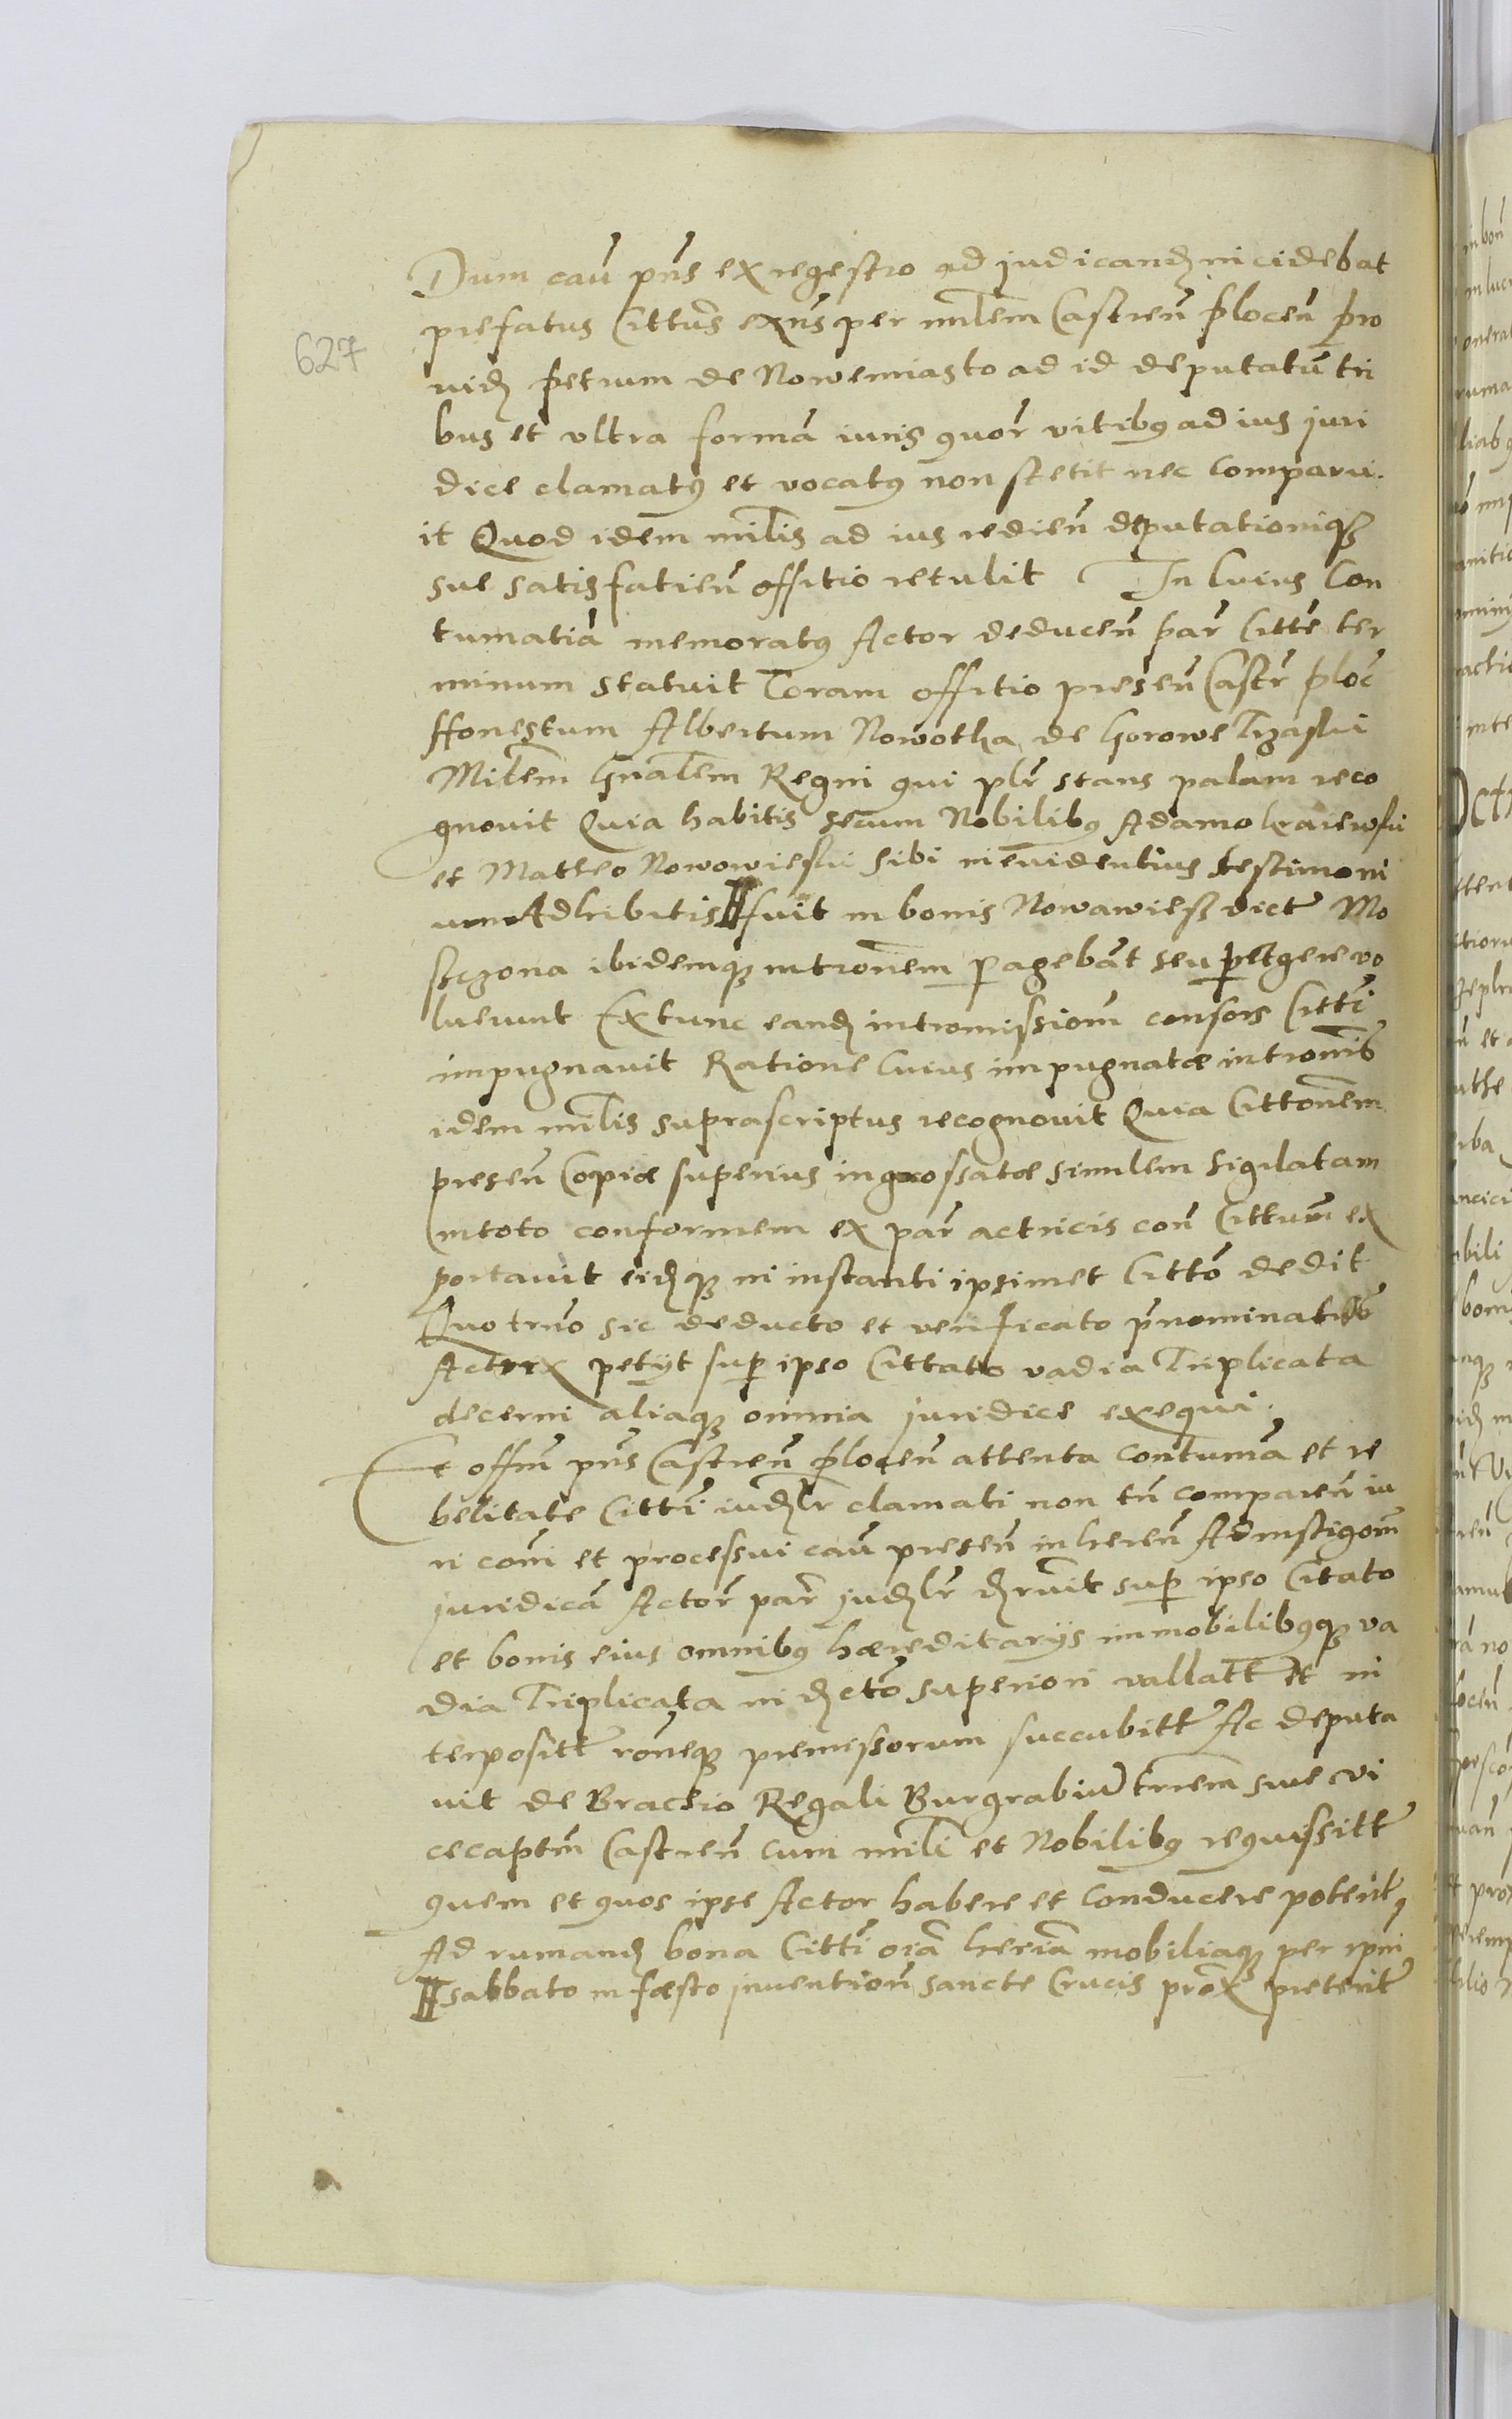 Dum cau pns ex regestro ad judicand incidebat
prefatus Cittus exns per mlem Castren plocen pro
627
uid petrum de Nowemiasto ad id deputatu tri
bus et vltra forma iuris quor vitibus ad ius juri
dice clamatus et vocatus non stetit nec comparu.
it Quod idem milis ad ius redien deputationiq
sue satisfatien offitio retulit In Cuius Con
tumatia memoratus Actor deducen par Citte ter
minum statuit Coram offitio presen Castr ploc
Honestum Albertum Nowotha de Gorowe Trzaski
Milem Gnalem Regni qui plr stans palam reco
gnouit Quia habitis secum Nobilibus Adamo
et Matteo Nowowieski sibi in euidentius testimoni
um Adhibitis fuit in bonis Nowawiess dict Mo
stczona ibidemq intronem pagebat seu pegere vo
luerunt Extunc eand intromissiom consors Citti
impugnauit Ratione Cuius impugnatæ intronis
idem milis suprascriptus recognouit Quia Cittonem
presen Copiæ superius ingrossatæ similem sigilatam
in toto conformem ex par actricis con Cittum ex
portauit eidq in instanti ipsimet Citto dedit
Quo trno sic deducto et verificato pnominat
Actrix petyt sup ipso Cittato vadia Triplicata
decerni aliaq omnia juridice exequi.
Et offm pns Castren plocen attenta contuma et re
belitate Citti iudlr clamati non tn comparen iu
ri com et processui cau presen inheren Ad instigom
juridica Actor par judlr druit sup ipso Citato
et bonis eius omnibus hæreditarijs immobilibusq va
dia Triplicata in dcto superiori vallatt et in
terpositt roneq premissorum succubitt Ac deputa
uit de Brachio Regali Burgrabiu trrem siue vi
cecaptm Castren cum mili et Nobilibus requissitt
quem et quos ipse Actor habere et conducere poterit
Ad rumand bona Citti oia heria mobiliaq per ipm
sabbato in fæsto inuention sancte Crucis prox preterit